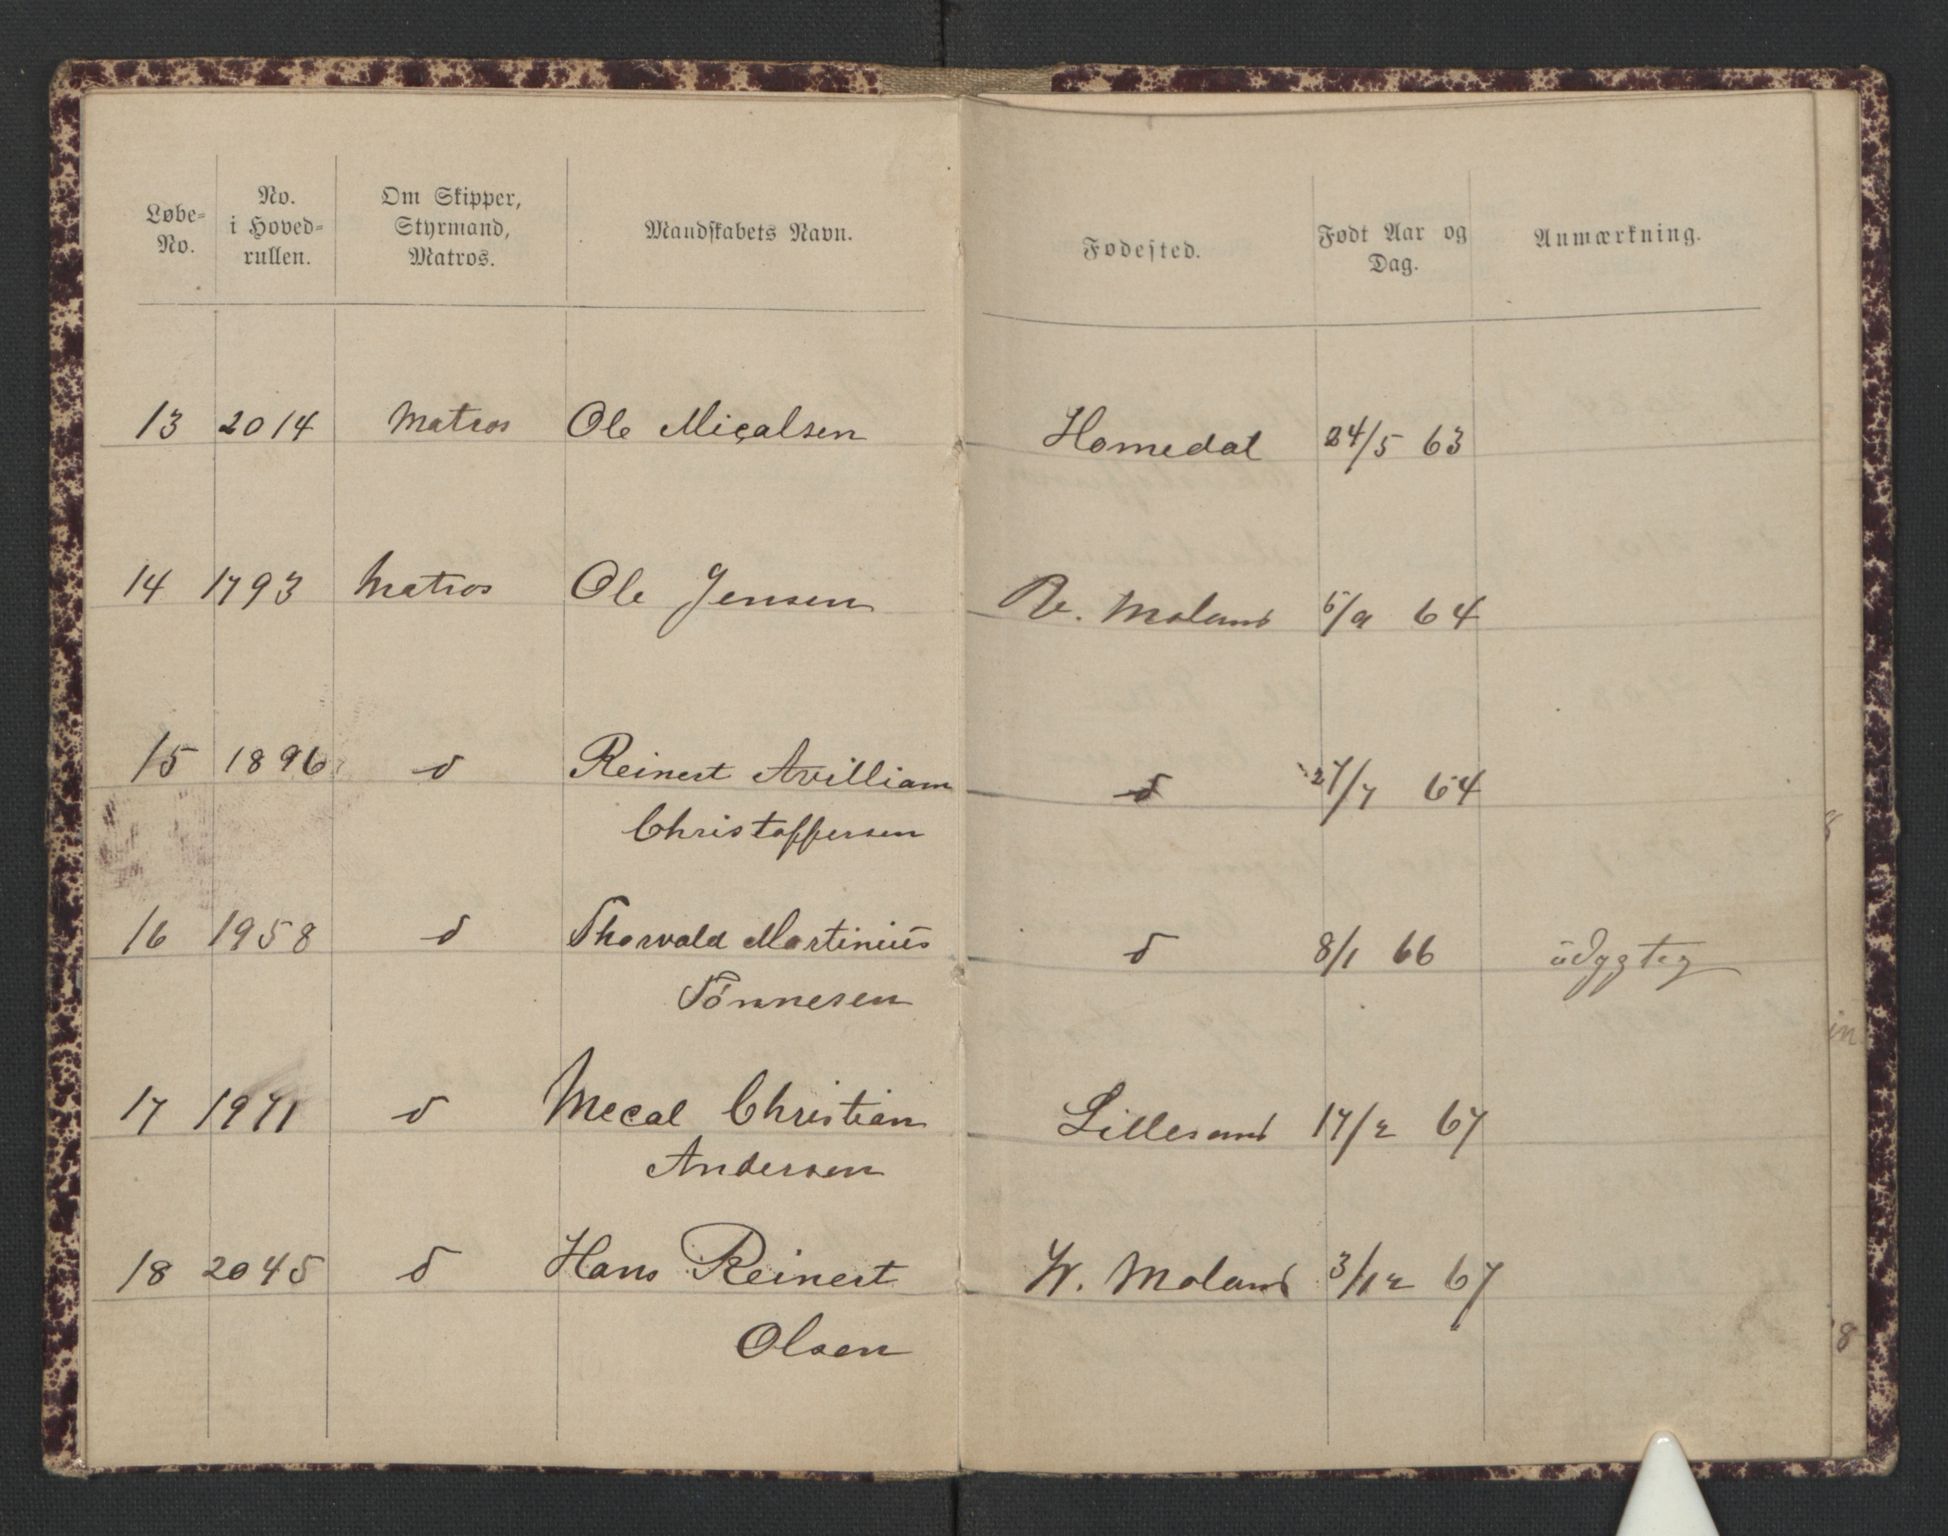 Løbe- No. | No. i Hoved- rullen. | Om Skipper, Styrmand, Matros. | Mandskabets Navn. | Fødested. | Født Aar og Dag. | Anmærkning.
13 2014 Matros Ole Miçalsen Homedal 24/5 63
14 1793 Matros Ole Jensen V. Moland 5/9 64
15 1896 d Reinert Avilliam d 27/7 64
Christoffersen
16 1958 d Thorvald Martinius d 8/1 66 üdygteg
Tönnesen
17 1971 d Mecal Christian Lillesand 17/2 67
Andersen
18 2045 d Hans Reinert W. Moland 3/12 67
Olsen